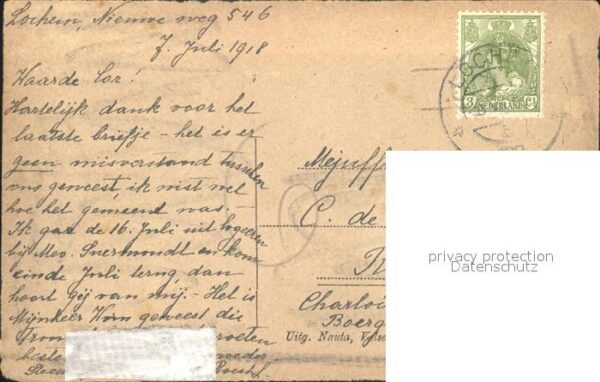 Lochem, Nieuwe weg 546
7 Juli 1918
Waarde Cor!
Hartelijk dank voor het
laatste briefje - het is er
geen misverstand tusschen
ons geweest, ik wist wel
hoe het gemeend was. -
Ik ga de 16. Juli uit logeeren
bij Mev. Suermondt en kom
einde Juli terug, dan
hoort gij van mij. - Het is
Mijnheer Worm geweest die
groeten
beste
Mejuff
C. de
Charlo
Boerg
Uitg. Nauta, Velse
LOCHEM
3 Ct
NEDERLAND
privacy protection
Datenschutz